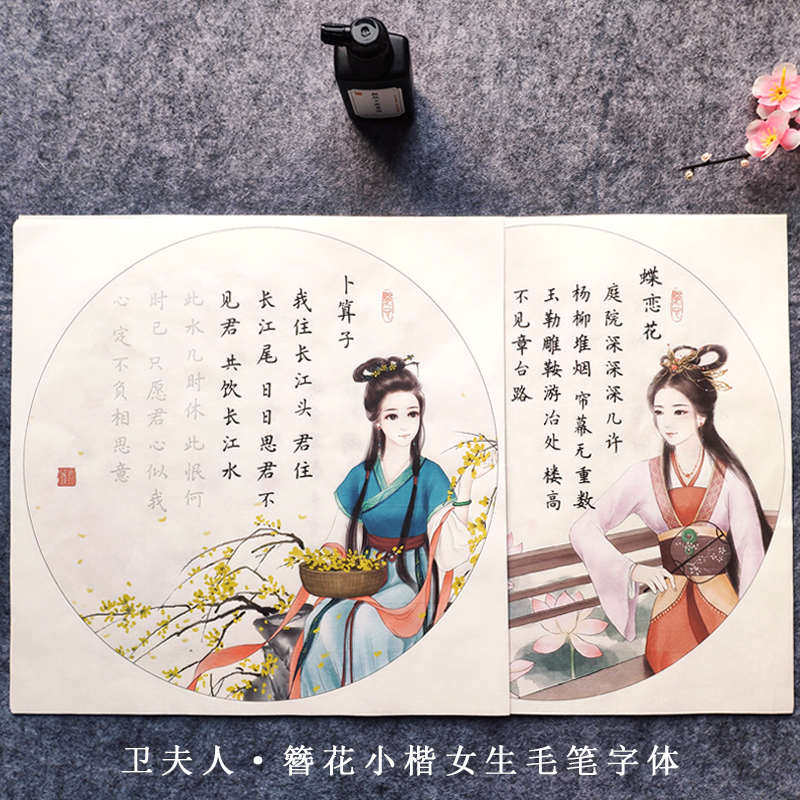 卜算子
我住长江头 君住
长江尾 日日思君不
见君 共饮长江水
此水几时休 此恨何
时已 只愿君心似我
心 定不负相思意
蝶恋花
庭院深深深几许
杨柳堆烟 帘幕无重数
玉勒雕鞍游冶处 楼高
不见章台路
卫夫人·簪花小楷女生毛笔字体